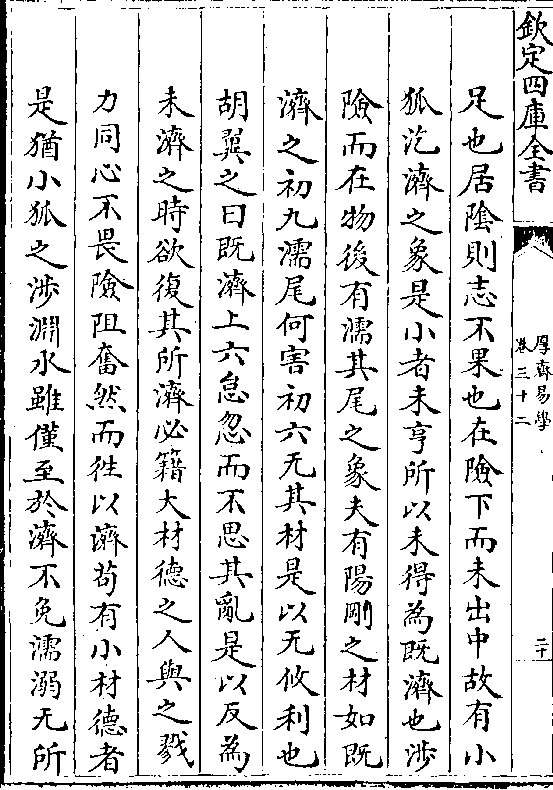 欽定四庫全書
厚齋易學
卷三十二
二十
足也居隂則志不果也在險下而未出中故有小
狐汔濟之象是小者未亨所以未得為既濟也渉
險而在物後有濡其尾之象夫有陽剛之材如既
濟之初九濡尾何害初六无其材是以无攸利也
胡翼之曰既濟上六怠忽而不思其亂是以反為
未濟之時欲復其所濟必籍大材德之人與之戮
力同心不畏險阻奮然而徃以濟茍有小材德者
是猶小狐之渉淵水雖僅至於濟不免濡溺无所